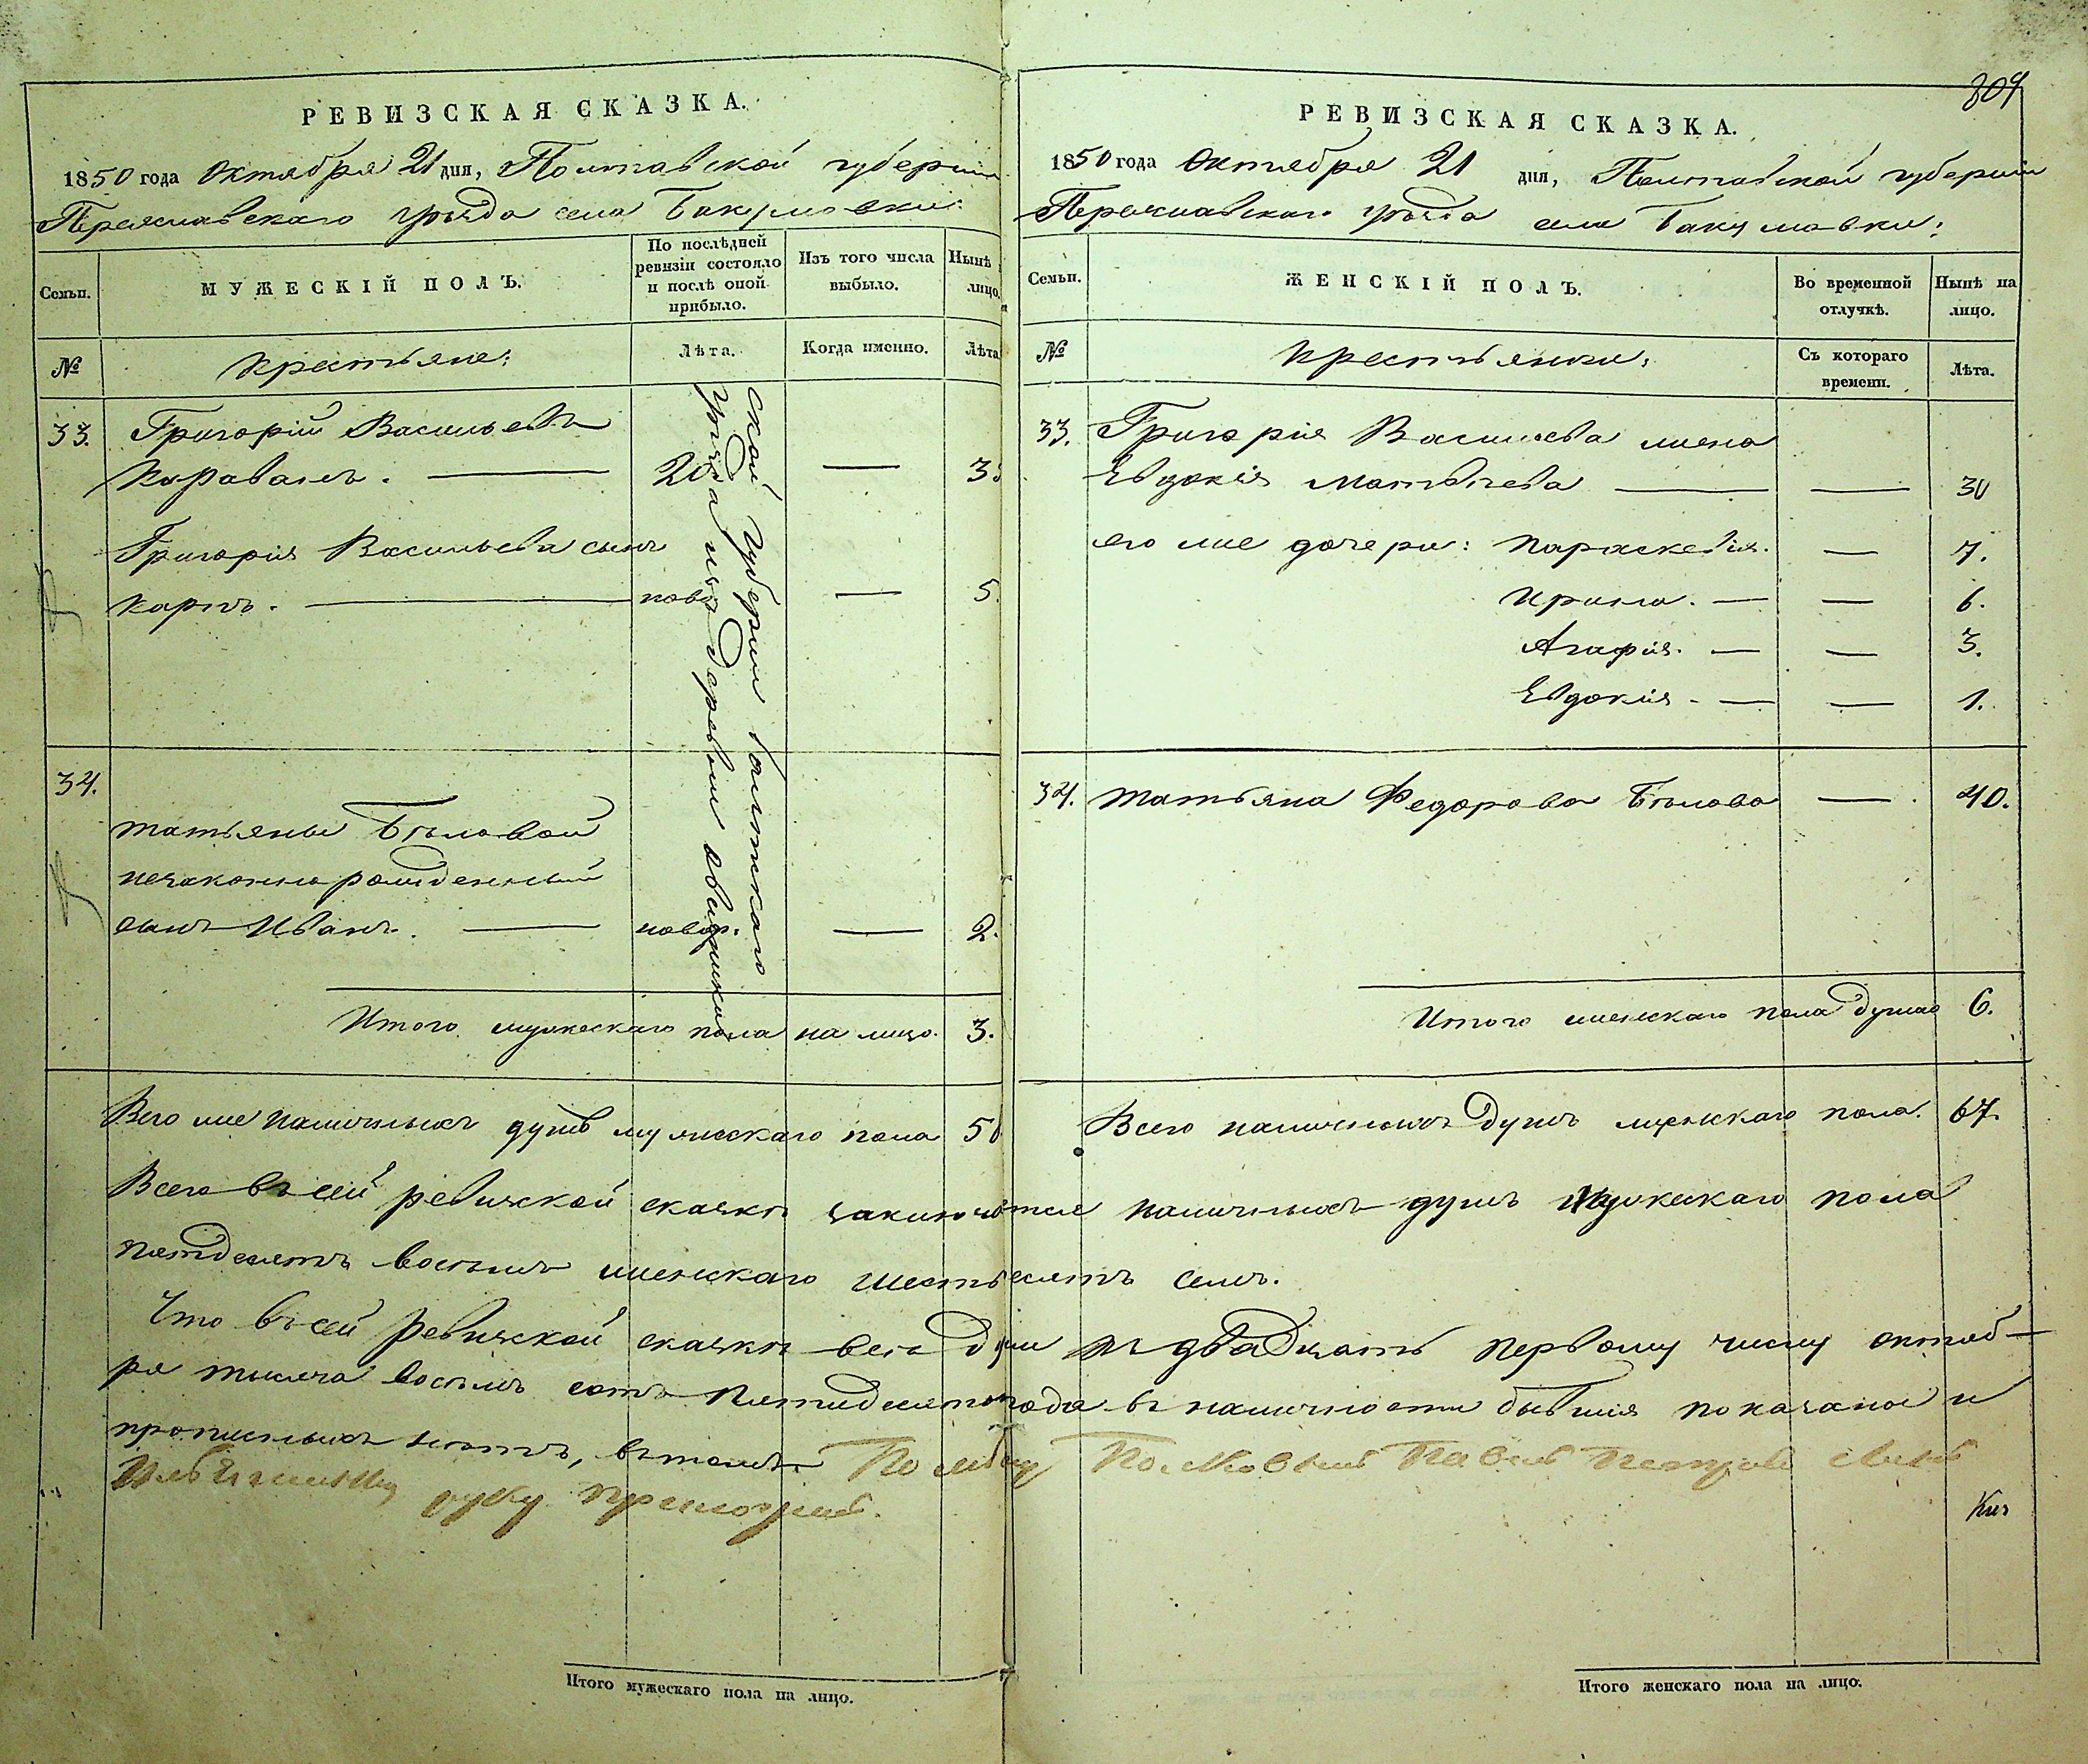 РЕВИЗСКАЯ СКАЗКА.
1850 года Октября 21 дня, Полтавской губерніи
Переяславскаго уѣзда села Бакумовки:
Семьи.
МУЖЕСКІЙ ПОЛЪ.
По послѣдней ревизіи состояло и послѣ оной прибыло.
Изъ того числа выбыло.
Нынѣ лицо.
№
Крестьяне:
Лѣта.
Когда именно.
Лѣта
33. Григорій Васильевъ
Караванъ. — 26 —
Григорія Васильева сынъ
Карпъ. — новор — 5.
34.
Татьяны Бѣловой
незаконно рожденный
сынъ Иванъ. — новор. — 2.
ской губерніи
уѣзда изъ деревни
Итого мужескаго пола на лицо. 3.
Всего же наличныхъ душъ мужескаго пола 58
РЕВИЗСКАЯ СКАЗКА.
1850 года Октября 21 дня, Полтавской губерніи
Переяславскаго уѣзда села Бакумовки:
Семьи.
ЖЕНСКІЙ ПОЛЪ.
Во временной отлучкѣ.
Нынѣ на лицо.
№
Крестьянки:
Съ котораго времени.
Лѣта.
33. Григорія Васильева жена
Евдокія Матвѣева — — 30
его же дочери: Параскевія. — 7.
Ирина. — — 6.
Агафія. — — 3.
Евдокія — — 1.
34. Татьяна Федорова Бѣлова — 40.
Итого женскаго пола душъ 6.
Всего наличныхъ душъ женскаго пола. 67.
Всего въ сей ревизской сказкѣ заключается наличныхъ душъ мужескаго пола
пятдесятъ восемь женскаго шестьдесятъ семь.
Что въ сей ревизской сказкѣ всѣ души къ двадцать первому числу октяб-
ря тысяча восемь сотъ пятидесятого года въ наличности бывшія показаны и
прописныхъ нѣтъ, въ томъ
руку приложилъ.
Итого мужескаго пола на лицо.
Итого женскаго пола на лицо.